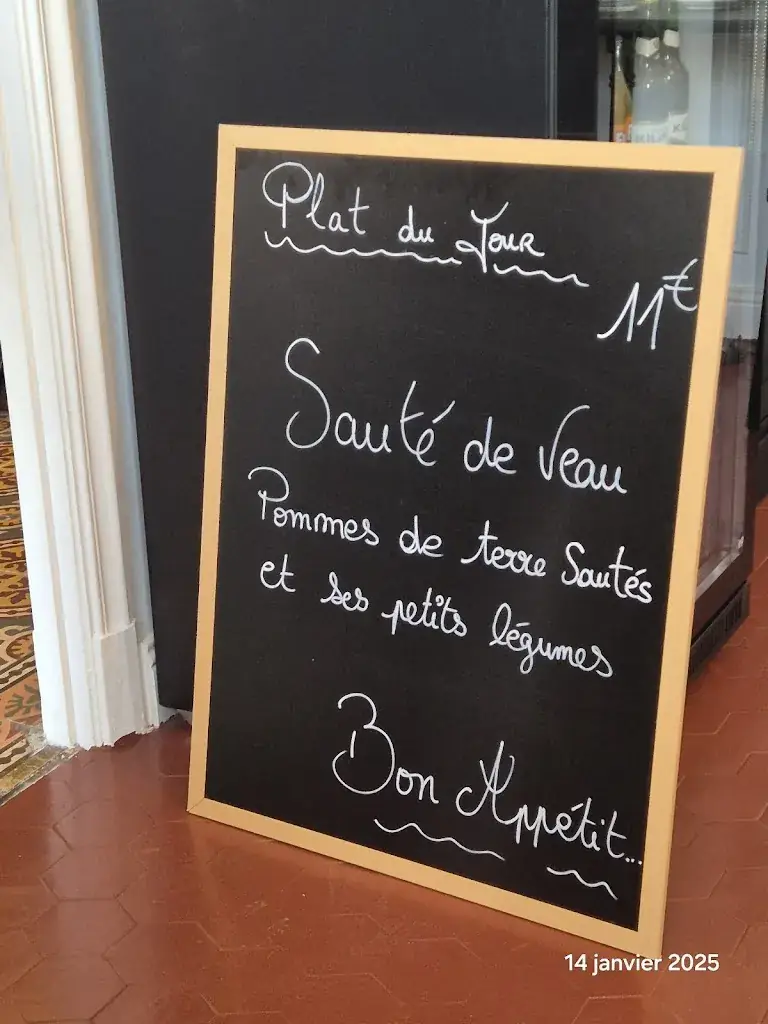 Plat du Jour
11€
Sauté de Veau
Pommes de terre Sautés
et ses petits légumes
Bon Appétit...
14 janvier 2025